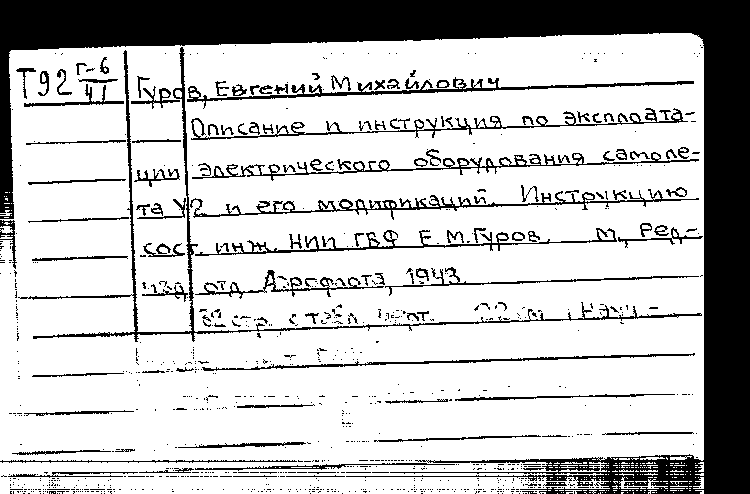 Т92 Г-6/41 Гуров, Евгений Михайлович
Описание и инструкция по эксплоата-
ции электрического оборудования самоле-
та У2 и его модификаций. Инструкцию
сост. инж. НИИ ГВФ Е.М.Гуров. М., Ред-
изд. отд. Аэрофлота, 1943.
32 стр. с табл., черт. 22 см. (Науч-